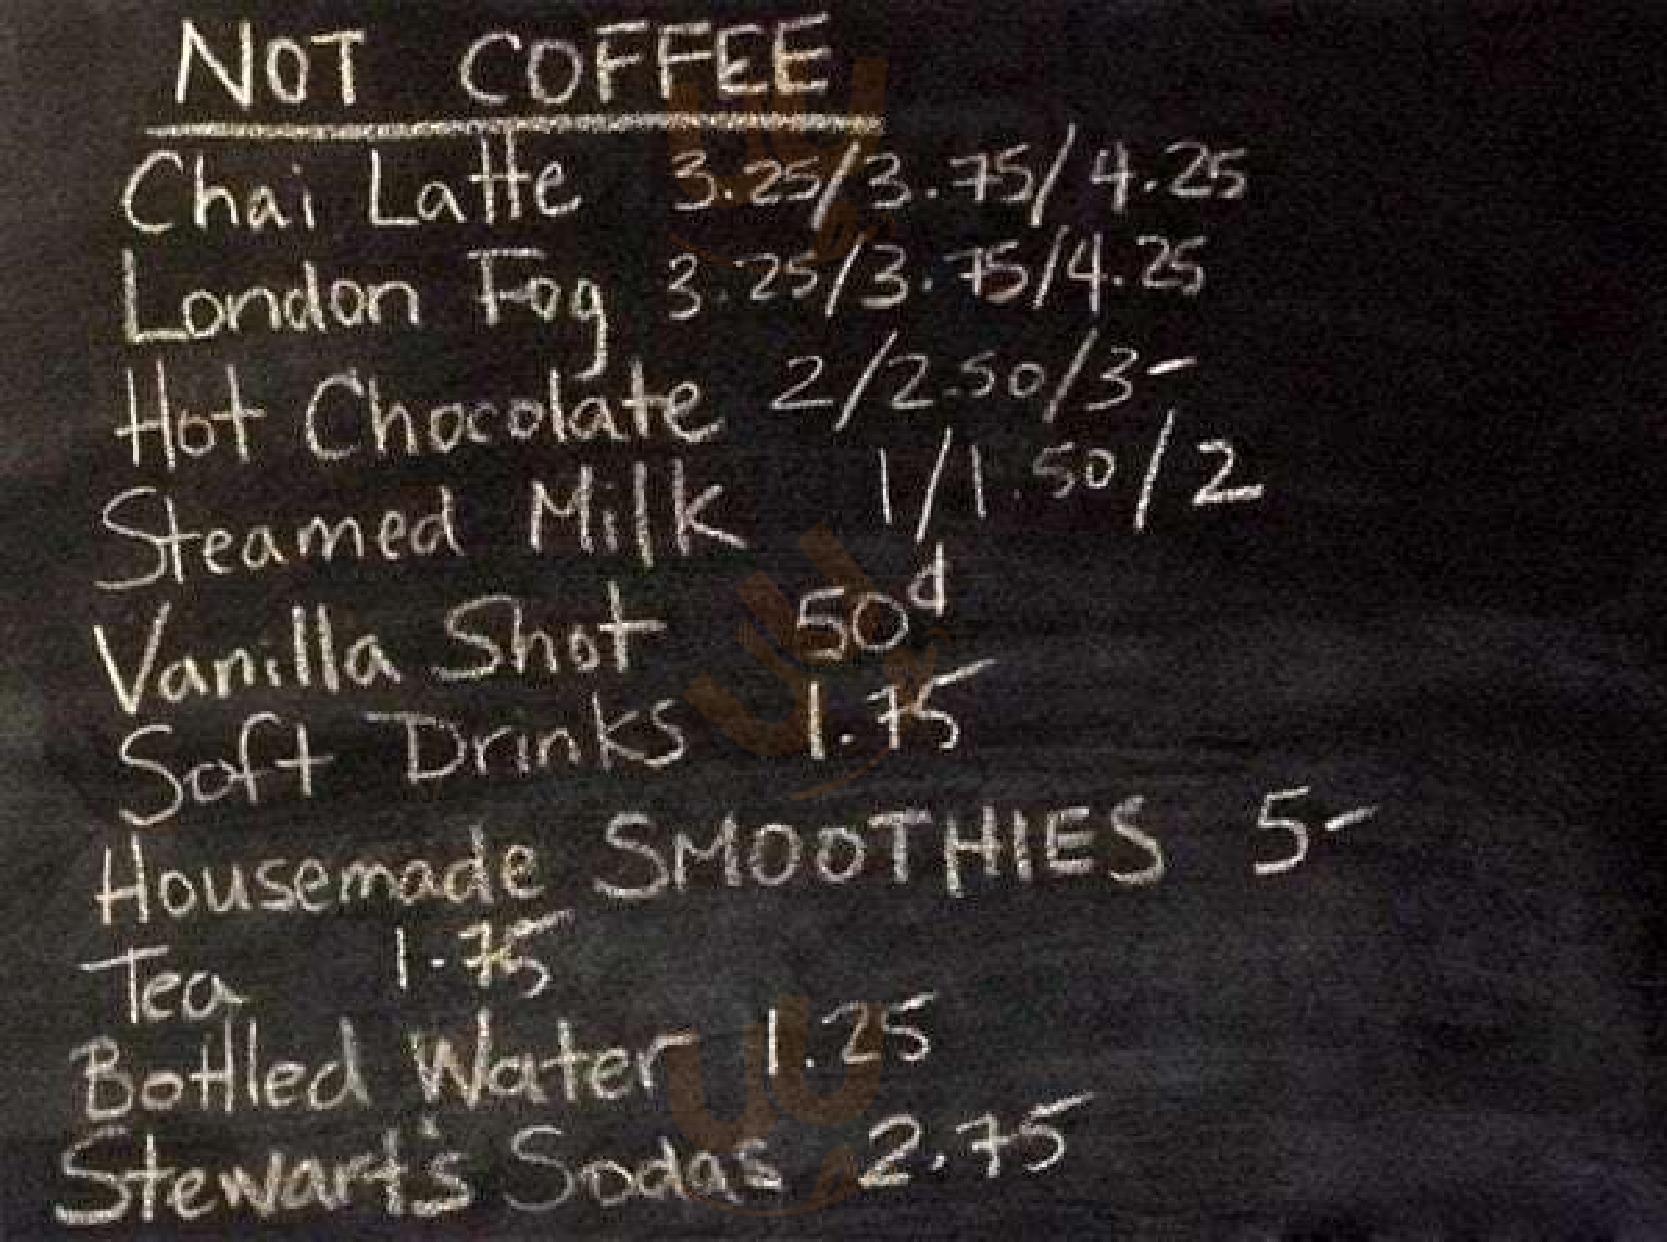 NOT COFFEE
Chai Latte 3.25/3.75/4.25
London Fog 3.25/3.75/4.25
Hot Chocolate 2/2.50/3-
Steamed Milk 1/1.50/2
Vanilla Shot 50¢
Soft Drinks 1.75
Housemade SMOOTHIES 5-
Tea 1.75
Bottled Water 1.25
Stewart's Sodas 2.75